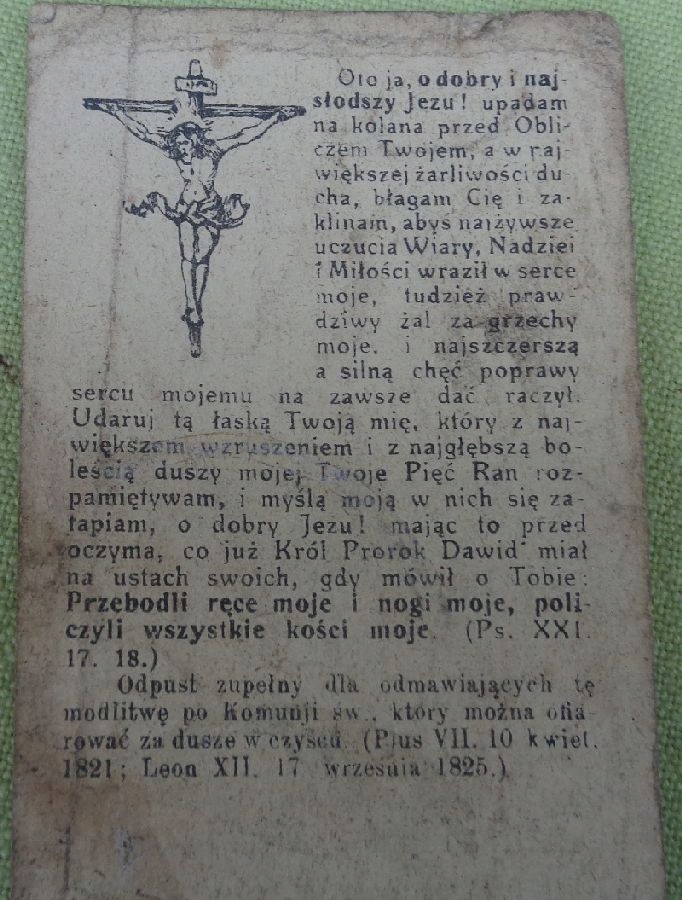 Oto ja, o dobry i naj-
słodszy Jezu! upadam
na kolana przed Obli-
czem Twojem, a w naj-
większej żarliwości du-
cha, błagam Cię i za-
klinam, abyś najżywsze
uczucia Wiary, Nadziei
i Miłości wraził w serce
moje, tudzież praw-
dziwy żal za grzechy
moje, i najszczerszą
a silną chęć poprawy
sercu mojemu na zawsze dać raczył.
Udaruj tą łaską Twoją mię, który z naj-
większem wzruszeniem i z najgłębszą bo-
leścią duszy mojej Twoje Pięć Ran roz-
pamiętywam, i myślą moją w nich się za-
tapiam, o dobry Jezu! mając to przed
oczyma, co już Król Prorok Dawid miał
na ustach swoich, gdy mówił o Tobie:
Przebodli ręce moje i nogi moje, poli-
czyli wszystkie kości moje. (Ps. XXI.
17. 18.)
Odpust zupełny dla odmawiających tę
modlitwę po Komunji św., który można ofia
rować za dusze w czyścu. (Pius VII. 10 kwiet.
1821; Leon XII. 17 września 1825.)